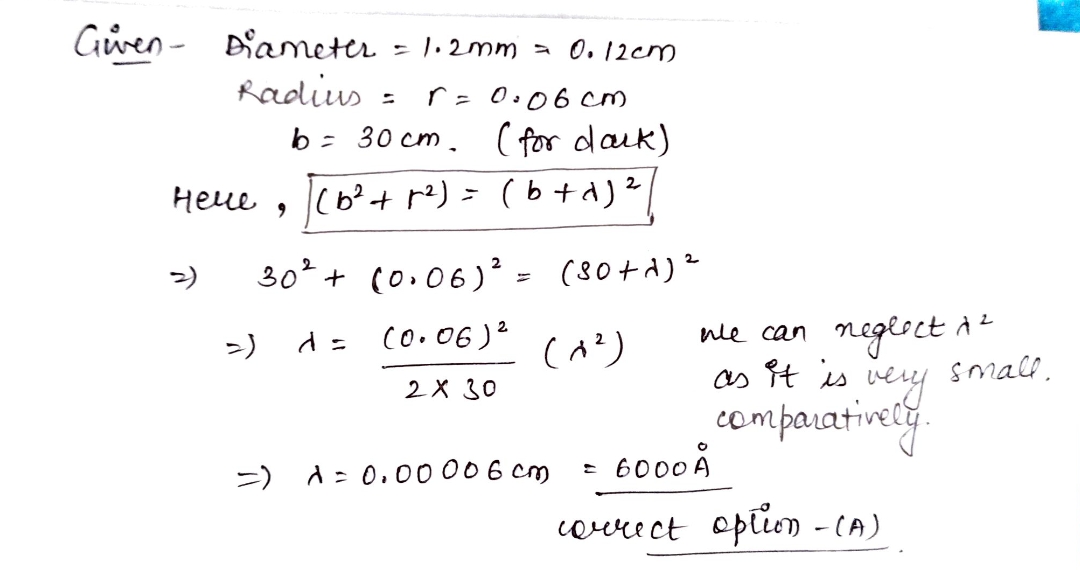 Given - Diameter = 1.2mm = 0.12cm
Radius = r = 0.06 cm
b = 30 cm. (for dark)
Here, (b² + r²) = (b + λ)²
=) 30² + (0.06)² = (30+λ)²
=) λ = (0.06)² / 2 × 30 (λ²) we can neglect λ²
as it is very small.
comparatively.
=) λ = 0.00006 cm = 6000 Å
correct option - (A).